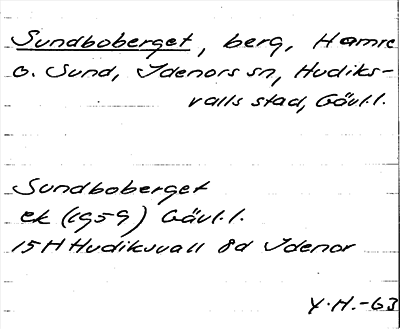 Sundboberget, berg, Hamre
o. Sund, Idenors sn, Hudiks-
valls stad, Gävl.l.
Sundboberget
ek (1959) Gävl.l.
15H Hudiksvall 8d Idenor
Y.H.-63